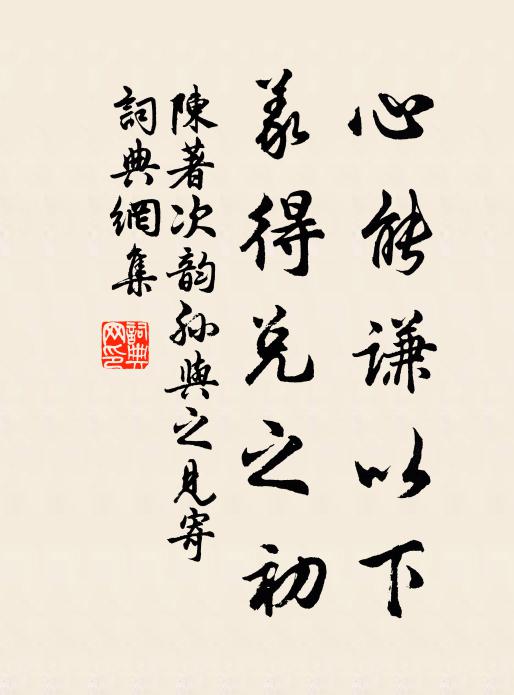 心能謙以下
義得兑之初
陳著次韵孫與之見寄
詞典網集
詞典
网印